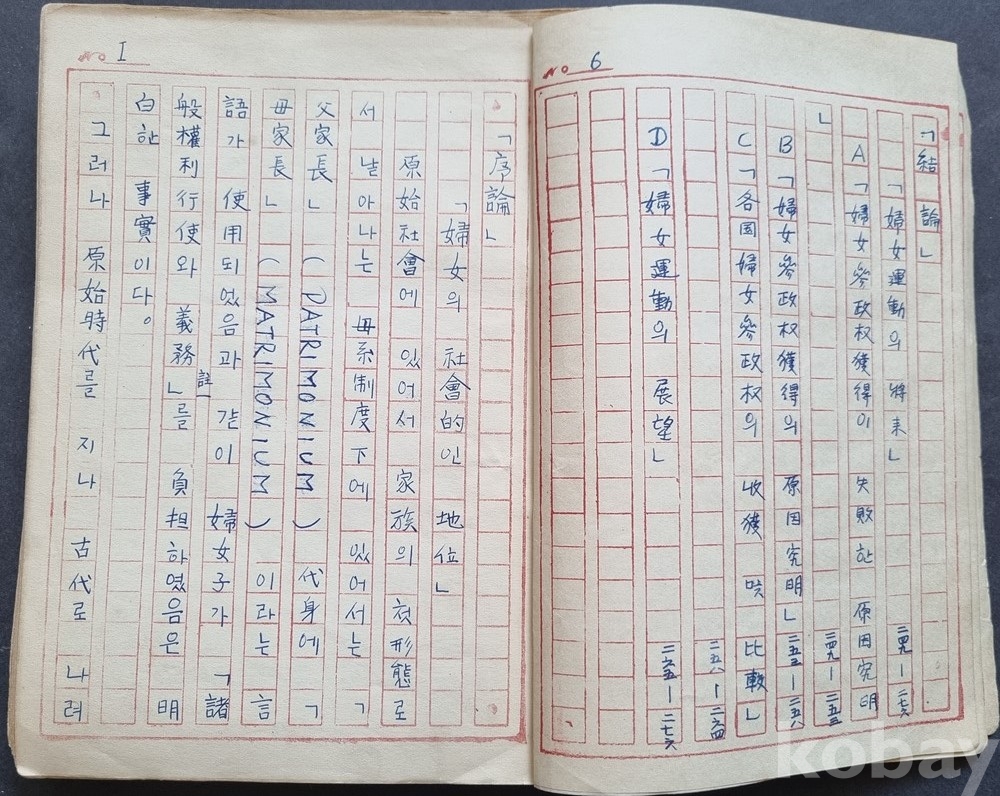 No 6
「結論」
「婦女運動의 將来」 二四九ー二七六
A 「婦女參政权獲得이 失敗한 原因究明
」 二四九ー二五三
B 「婦女參政权獲得의 原因究明」 二五三ー二五八
C 「各国婦女參政权의 收獲 및 比較」
二五八ー二六四
D 「婦女運動의 展望」 二六五ー二七六
No I
「序論」
「婦女의 社會的인 地位」
原始社會에 있어서 家族의 첫形態로
서 날아나는 母系制度下에 있어서는 「
父家長」 (PATRIMONIUM) 代身에 「
母家長」 (MATRIMONIUM) 이라는 言
語가 使用되었음과 같이 婦女子가 「諸
註一
般權利行使와 義務」를 負担하였음은 明
白한 事實이다。
그러나 原始時代를 지나 古代로 나려
kobay